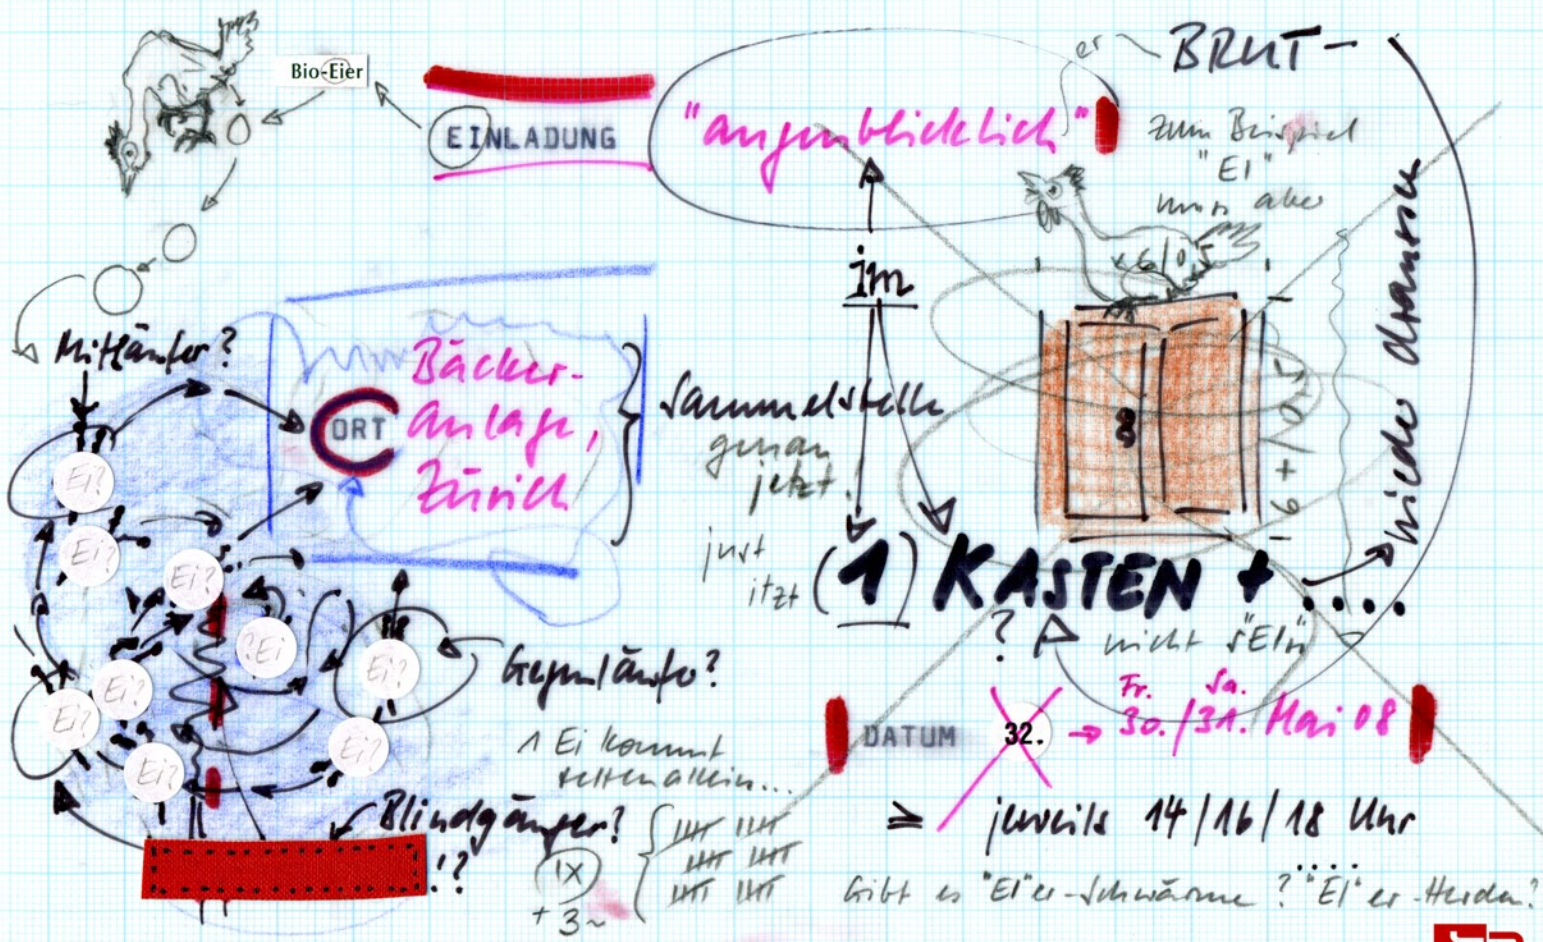 Bio-Eier
EINLADUNG
"augenblicklich"
er
BRUT-
zum Beispiel
"EI"
muss aber
im
wieder draussen
Mitläufer?
ORT
Bäcker-
Anlage,
Zürich
Sammelstelle
genau
jetzt
just
itzt
8
(1) KASTEN + ....
?
nicht "EI"
Ei?
Ei?
Ei?
?Ei
Ei?
Ei?
Ei?
Ei?
Ei?
Gegenläufer?
1 Ei kommt
selten allein...
Blindgänger?
!?
1x
+ 3~
DATUM
32.
→ Fr. Sa.
30./31. Mai 08
≥ jeweils 14/16/18 Uhr
Gibt es "EI"er-Schwärme? "EI"er-Herden?